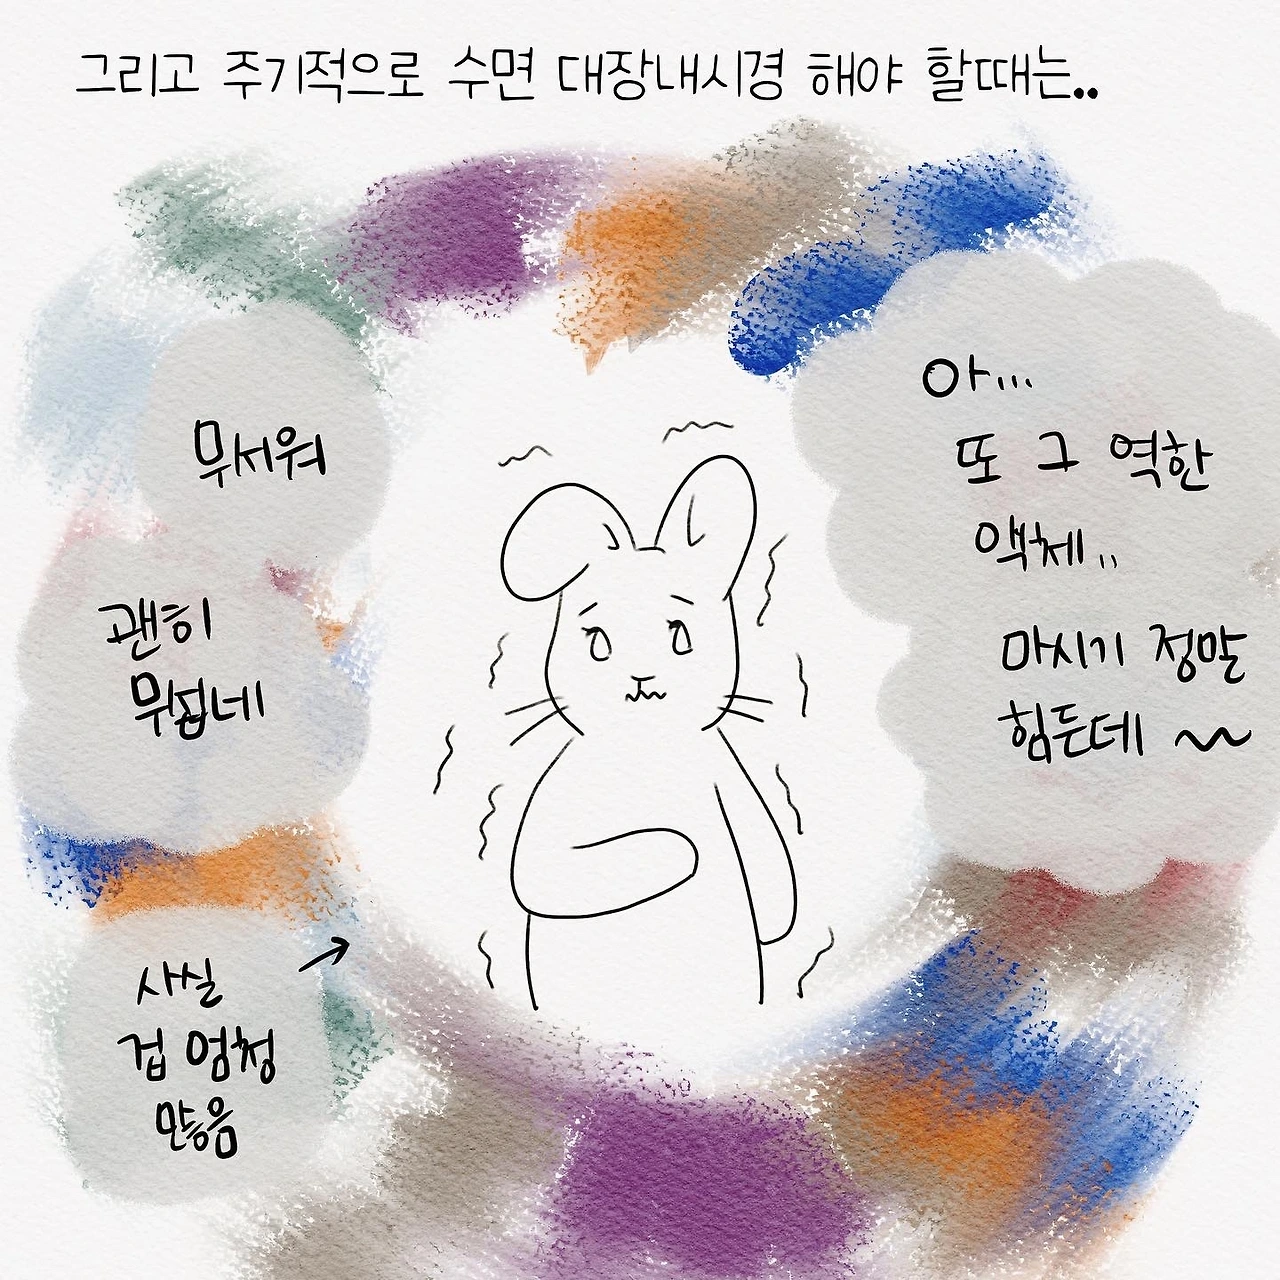 그리고 주기적으로 수면 대장내시경 해야 할때는..
무서워
괜히
무섭네
사실
겁 엄청
많음
아...
또 그 역한
액체..
마시기 정말
힘든데 ~~